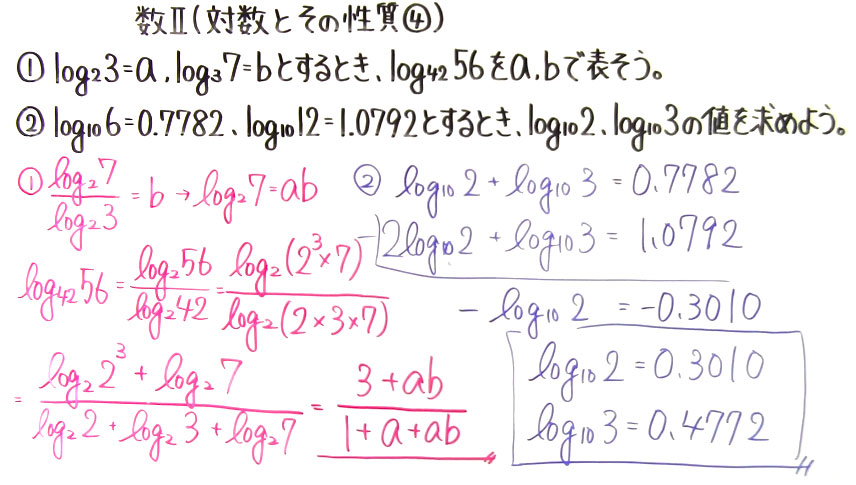 数Ⅱ(対数とその性質④)
① log₂3=a, log₃7=bとするとき、log₄₂56をa,bで表そう。
② log₁₀6=0.7782、log₁₀12=1.0792とするとき、log₁₀2、log₁₀3の値を求めよう。
① log₂7/log₂3 = b → log₂7=ab
log₄₂56 = log₂56/log₂42 = log₂(2³×7)/log₂(2×3×7)
= (log₂2³ + log₂7)/(log₂2 + log₂3 + log₂7) = (3+ab)/(1+a+ab)
② log₁₀2 + log₁₀3 = 0.7782
-) 2log₁₀2 + log₁₀3 = 1.0792
- log₁₀2 = -0.3010
log₁₀2 = 0.3010
log₁₀3 = 0.4772